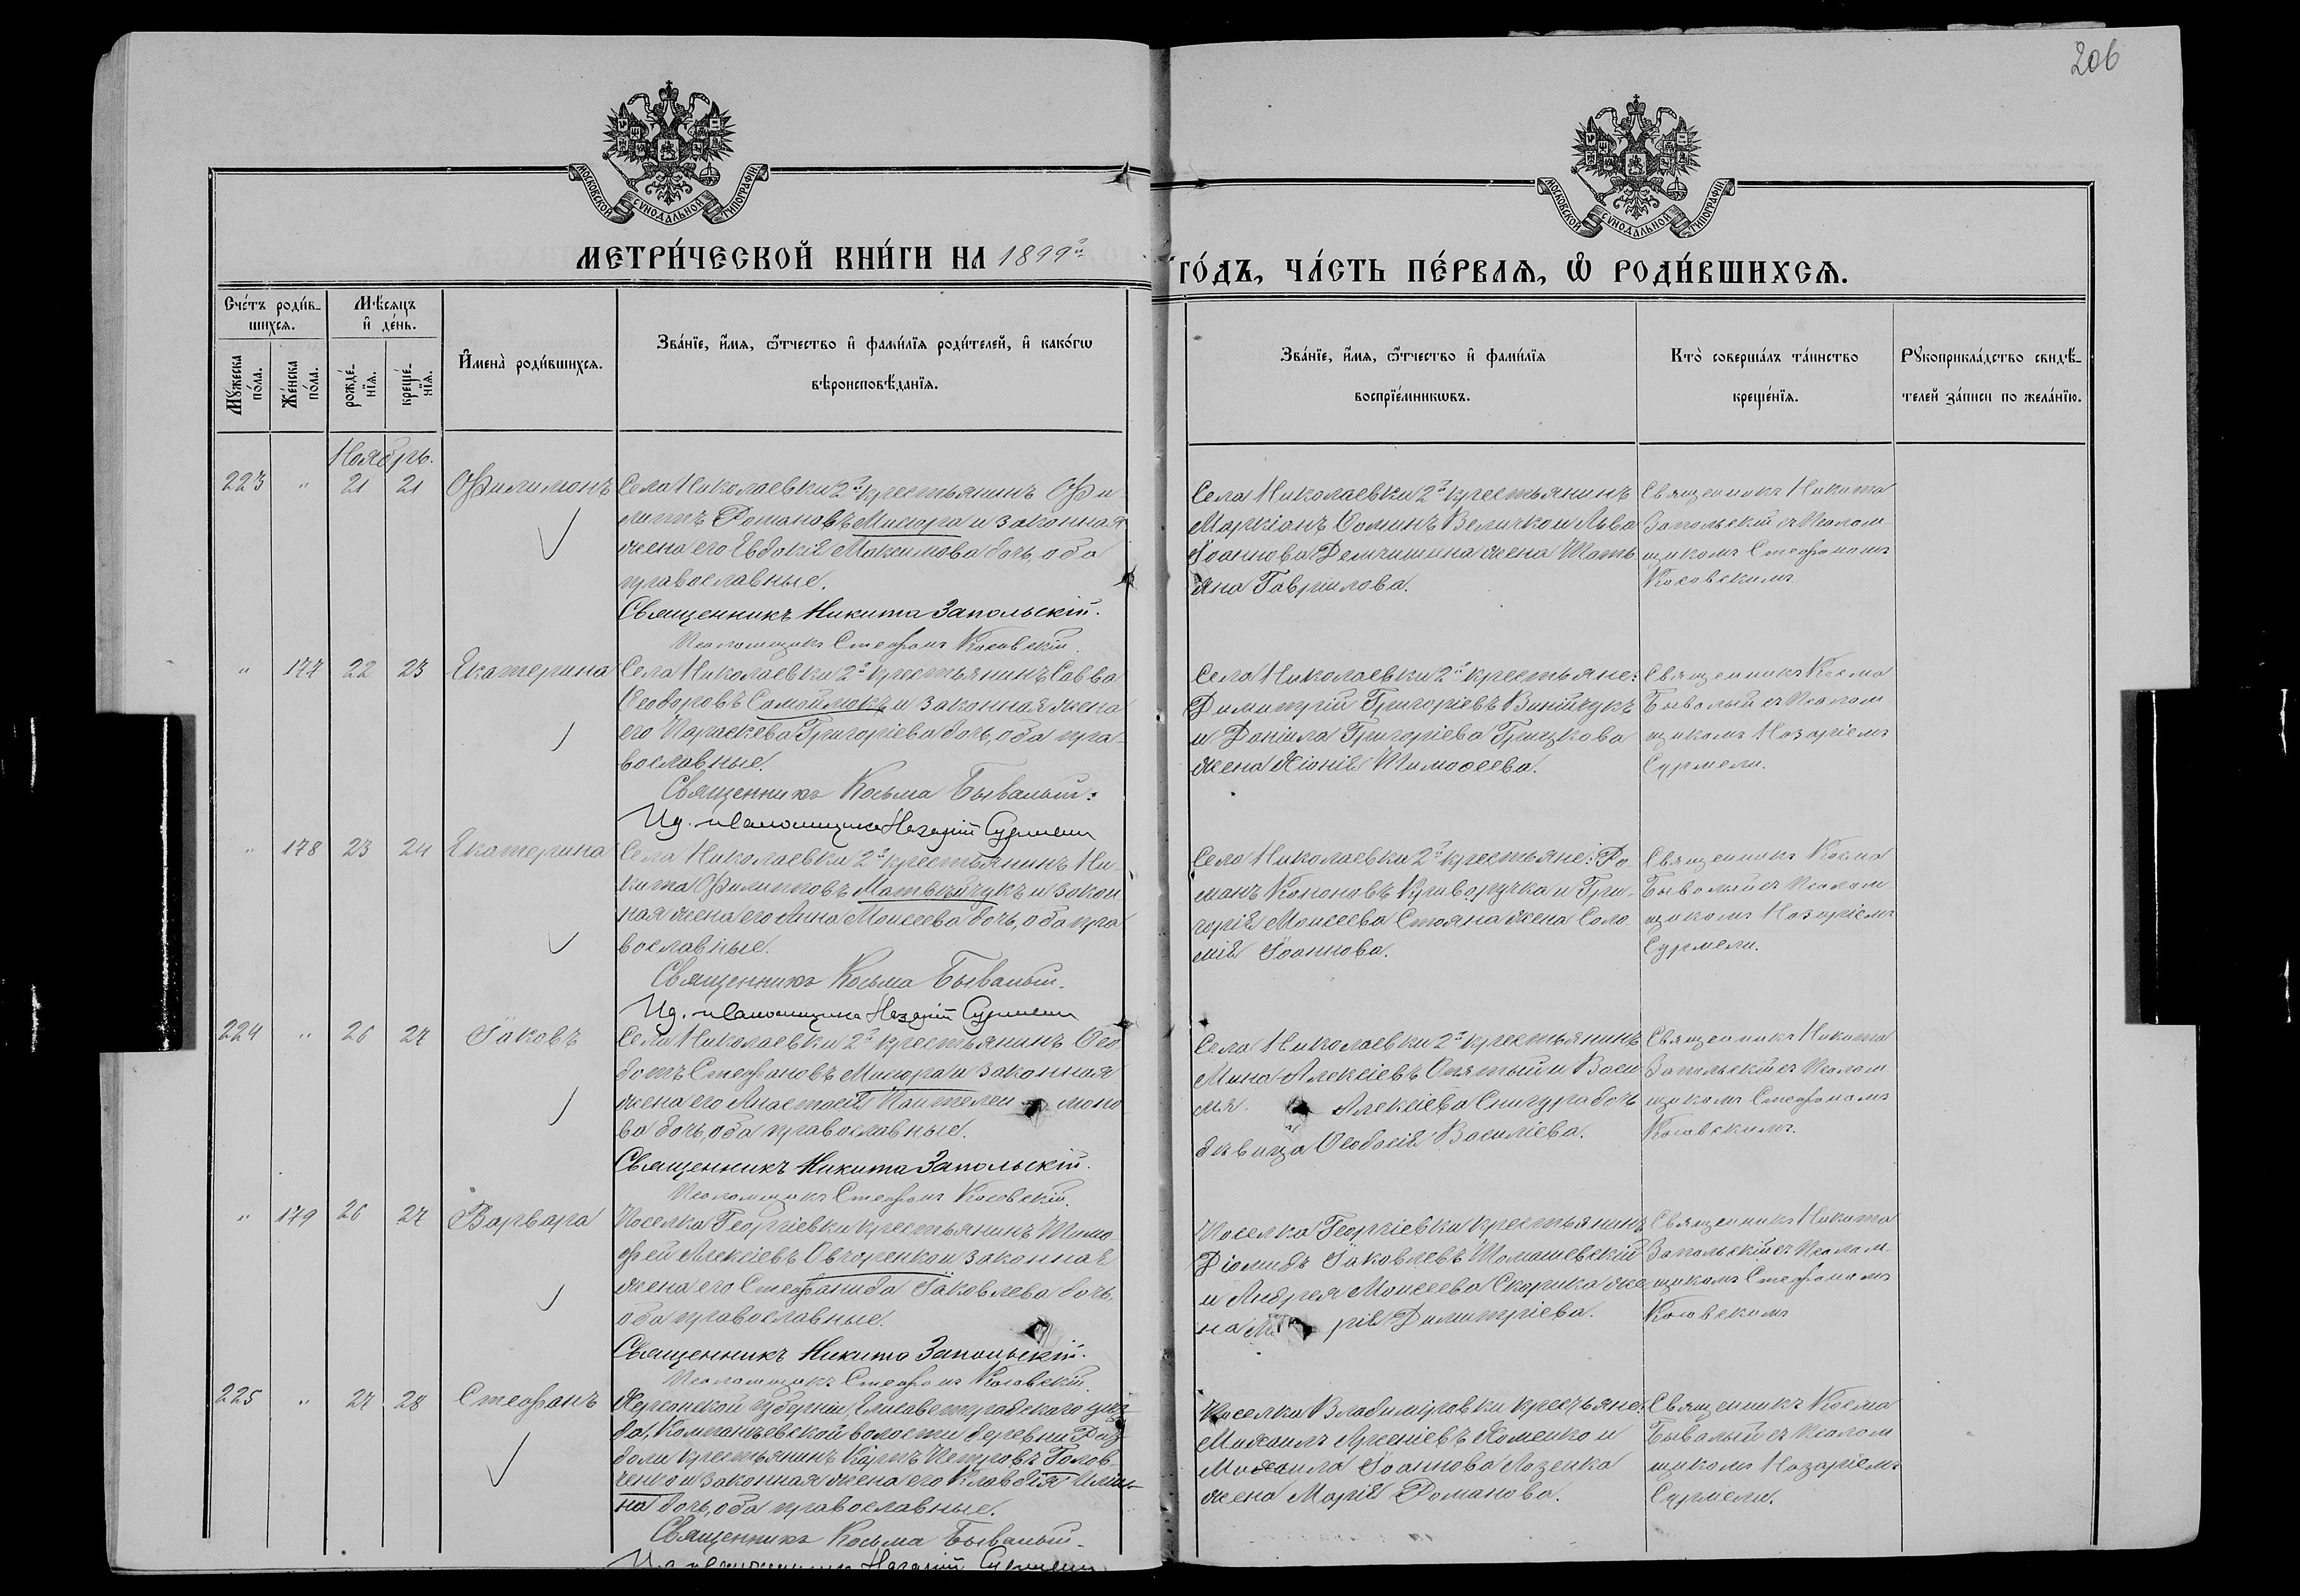 206
МОСКОВСКОЙ СУНОДАЛЬНОЙ ТИПОГРАФІИ
МОСКОВСКОЙ СУНОДАЛЬНОЙ ТИПОГРАФІИ
МЕТРИ́ЧЕСКОЙ КНИ́ГИ НА 1899й
ГО́ДЪ, ЧА́СТЬ ПЕ́РВАѦ, Ѽ РОДИ́ВШИХСѦ.
Сче́тъ роди́в-
шихсѧ.
Мꙋ́жеска
по́ла.
Же́нска
по́ла.
Мѣ́сѧцъ
и҆ де́нь.
рожде́-
нїѧ.
креще́-
нїѧ.
И҆мена̀ роди́вшихсѧ.
Зва́нїе, и҆́мѧ, ѻ҆́тчество и҆ фами́лїѧ роди́телей, и҆ како́гѡ
вѣроисповѣ́данїѧ.
Зва́нїе, и҆́мѧ, ѻ҆́тчество и҆ фами́лїѧ
воспрїе́мникѡвъ.
Кто̀ соверша́лъ та́инство
креще́нїѧ.
Рꙋкоприкла́дство свидѣ́-
телей за́писи по жела́нїю.
Ноябрь.
223 " 21 21 Филимонъ
Села Николаевки 2й крестьянинъ Фи-
липпъ Романовъ Мисюра и законная
жена его Евдокія Максимова дочь, оба
православные.
Священникъ Никита Запольскій.
Псаломщикъ Стефанъ Косовскій.
Села Николаевки 2й крестьянинъ
Маркіанъ Ѳоминъ Величко и Льва
Іоаннова Демчишина жена Тать
яна Гаврилова.
Священникъ Никита
Запольскій съ Псалом
щикомъ Стефаномъ
Косовскимъ
" 177 22 23 Екатерина
Села Николаевки 2й крестьянинъ Савва
Ѳеодоровъ Самойлюкъ и законная жена
его Параскева Григоріева дочь, оба пра-
вославные.
Священникъ Косьма Бывалый.
Ид. псаломщика Назарій Сурмели
Села Николаевки 2й крестьяне:
Димитрій Григоріевъ Винійчукъ
и Даніила Григоріева Грицкова
жена Хіонія Тимоѳеева.
Священникъ Косма
Бывалый съ Псалом
щикомъ Назаріемъ
Сурмели.
" 178 23 24 Екатерина
Села Николаевки 2й крестьянинъ Ни-
кита Филипповъ Матвійчукъ и закон
ная жена его Анна Моисеева дочь, оба пра
вославные.
Священникъ Косьма Бывалый.
Ид. псаломщика Назарій Сурмели
Села Николаевки 2й крестьяне: Ро-
манъ Кононовъ Криворучка и Гри-
горія Моисеева Стояна жена Соло-
мія Іоаннова.
Священникъ Косма
Бывалый съ Псалом
щикомъ Назаріемъ
Сурмели.
224 " 26 27 Іаковъ
Села Николаевки 2й крестьянинъ Ѳео
дотъ Стефановъ Мисюра и законная
жена его Анастасія Пантелеи моно
ва дочь, оба православные.
Священникъ Никита Запольскій.
Псаломщикъ Стефанъ Косовскій.
Села Николаевки 2й крестьянинъ
Мина Алексіевъ Опятый и Васи
лія Алексіева Снигура дочь
дѣвица Ѳеодосія Василіева.
Священникъ Никита
Запольскій съ Псалом
щикомъ Стефаномъ
Косовскимъ.
" 179 26 27 Варвара
Поселка Георгіевки крестьянинъ Тимо
фей Алексіевъ Овчаренко и законная
жена его Стефанида Іаковлева дочь,
оба православные.
Священникъ Никита Запольскій.
Псаломщикъ Стефанъ Косовскій.
Поселка Георгіевки крестьянинъ
Діомидъ Іаковлевъ Томашевскій
и Андрея Моисеева Скорика же
на Ма рія Димитріева.
Священникъ Никита
Запольскій съ Псалом
щикомъ Стефаномъ
Косовскимъ
225 " 27 28 Стефанъ
Херсонской губерніи, Елисаветградскаго уѣз
да, Компанѣевской волости деревни Роз
доли крестьянинъ Карпъ Петровъ Голов-
ченко и законная жена его Клавдія
на дочь, оба православные.
Священникъ Косьма Бывалый.
Ид. псаломщика Назарій Сурмели
Поселка Владиміровки крестьяне:
Михаилъ Арсеніевъ Хоменко и
Михаила Іоаннова Лозенка
жена Марія Романова.
Священникъ Косма
Бывалый съ Псалом
щикомъ Назаріемъ
Сурмели.